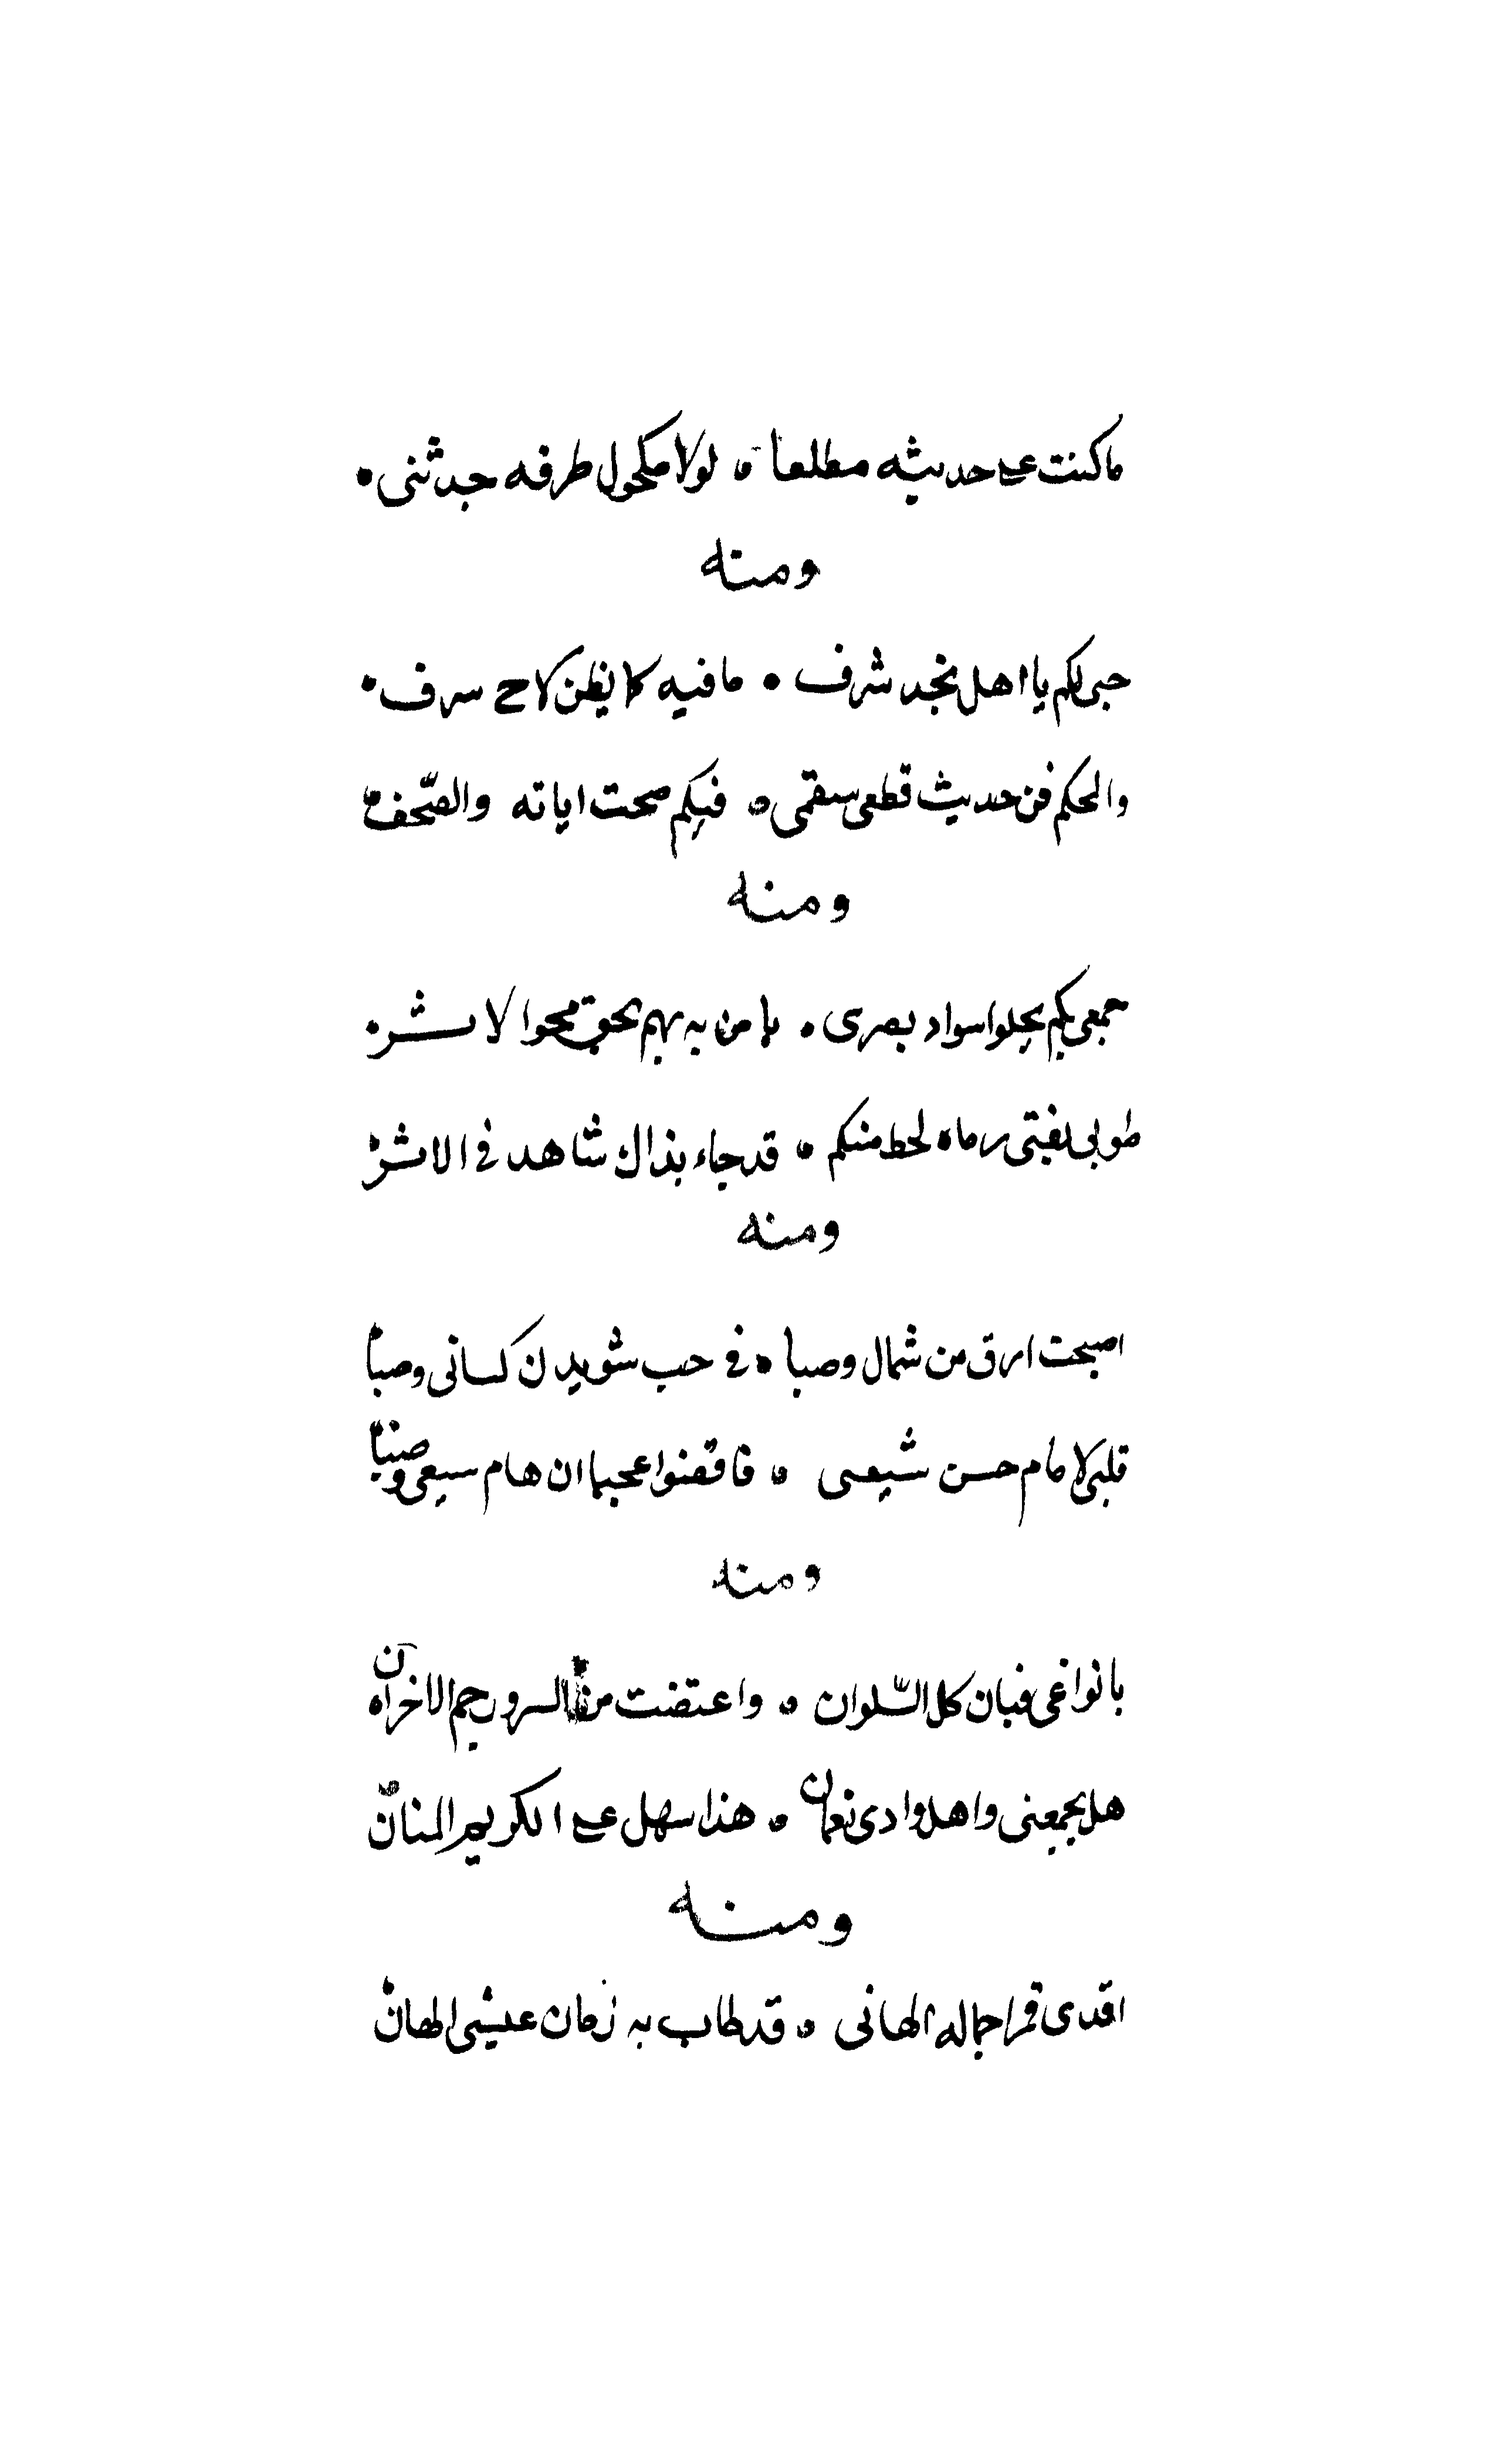 ماكنت على حديثه مطلعا ٥ لولا مكحول طرفه حدثنى ٠
ومنه
حبى لكم يا اهل نجد شرف ٠ ما فيه كا يظن لاح سرف ٠
والحكم فن حديث قطعى سقمى ٥ فيكم صحت اياته والصحف
ومنه
جمعى بكم يجلوا سواد بصرى ٠ يا من به بهم يحق محوا لاشر ٠
طوبى لفتى رماه لحظ منكم ٥ قد جاء بذاك شاهد فى الاثر
ومنه
اصبحت ارق من شمال وصبا ٥ فى حب شويدن كسانى وصبا
قلبى لامام حسن شيعى ٥ فاقضوا عجبا ان هام سيعى وصبا
ومنه
بانوا عنى فبان كل السّلوان ٥ واعتضت من السرور جم الاحزان
هل يجمعنى واهل وادى نعمان ٥ هذا سهل على الكريم المنان
ومنه
افدى قمرا جماله الهانى ٥ قد طاب به زمان عيشى الهانى